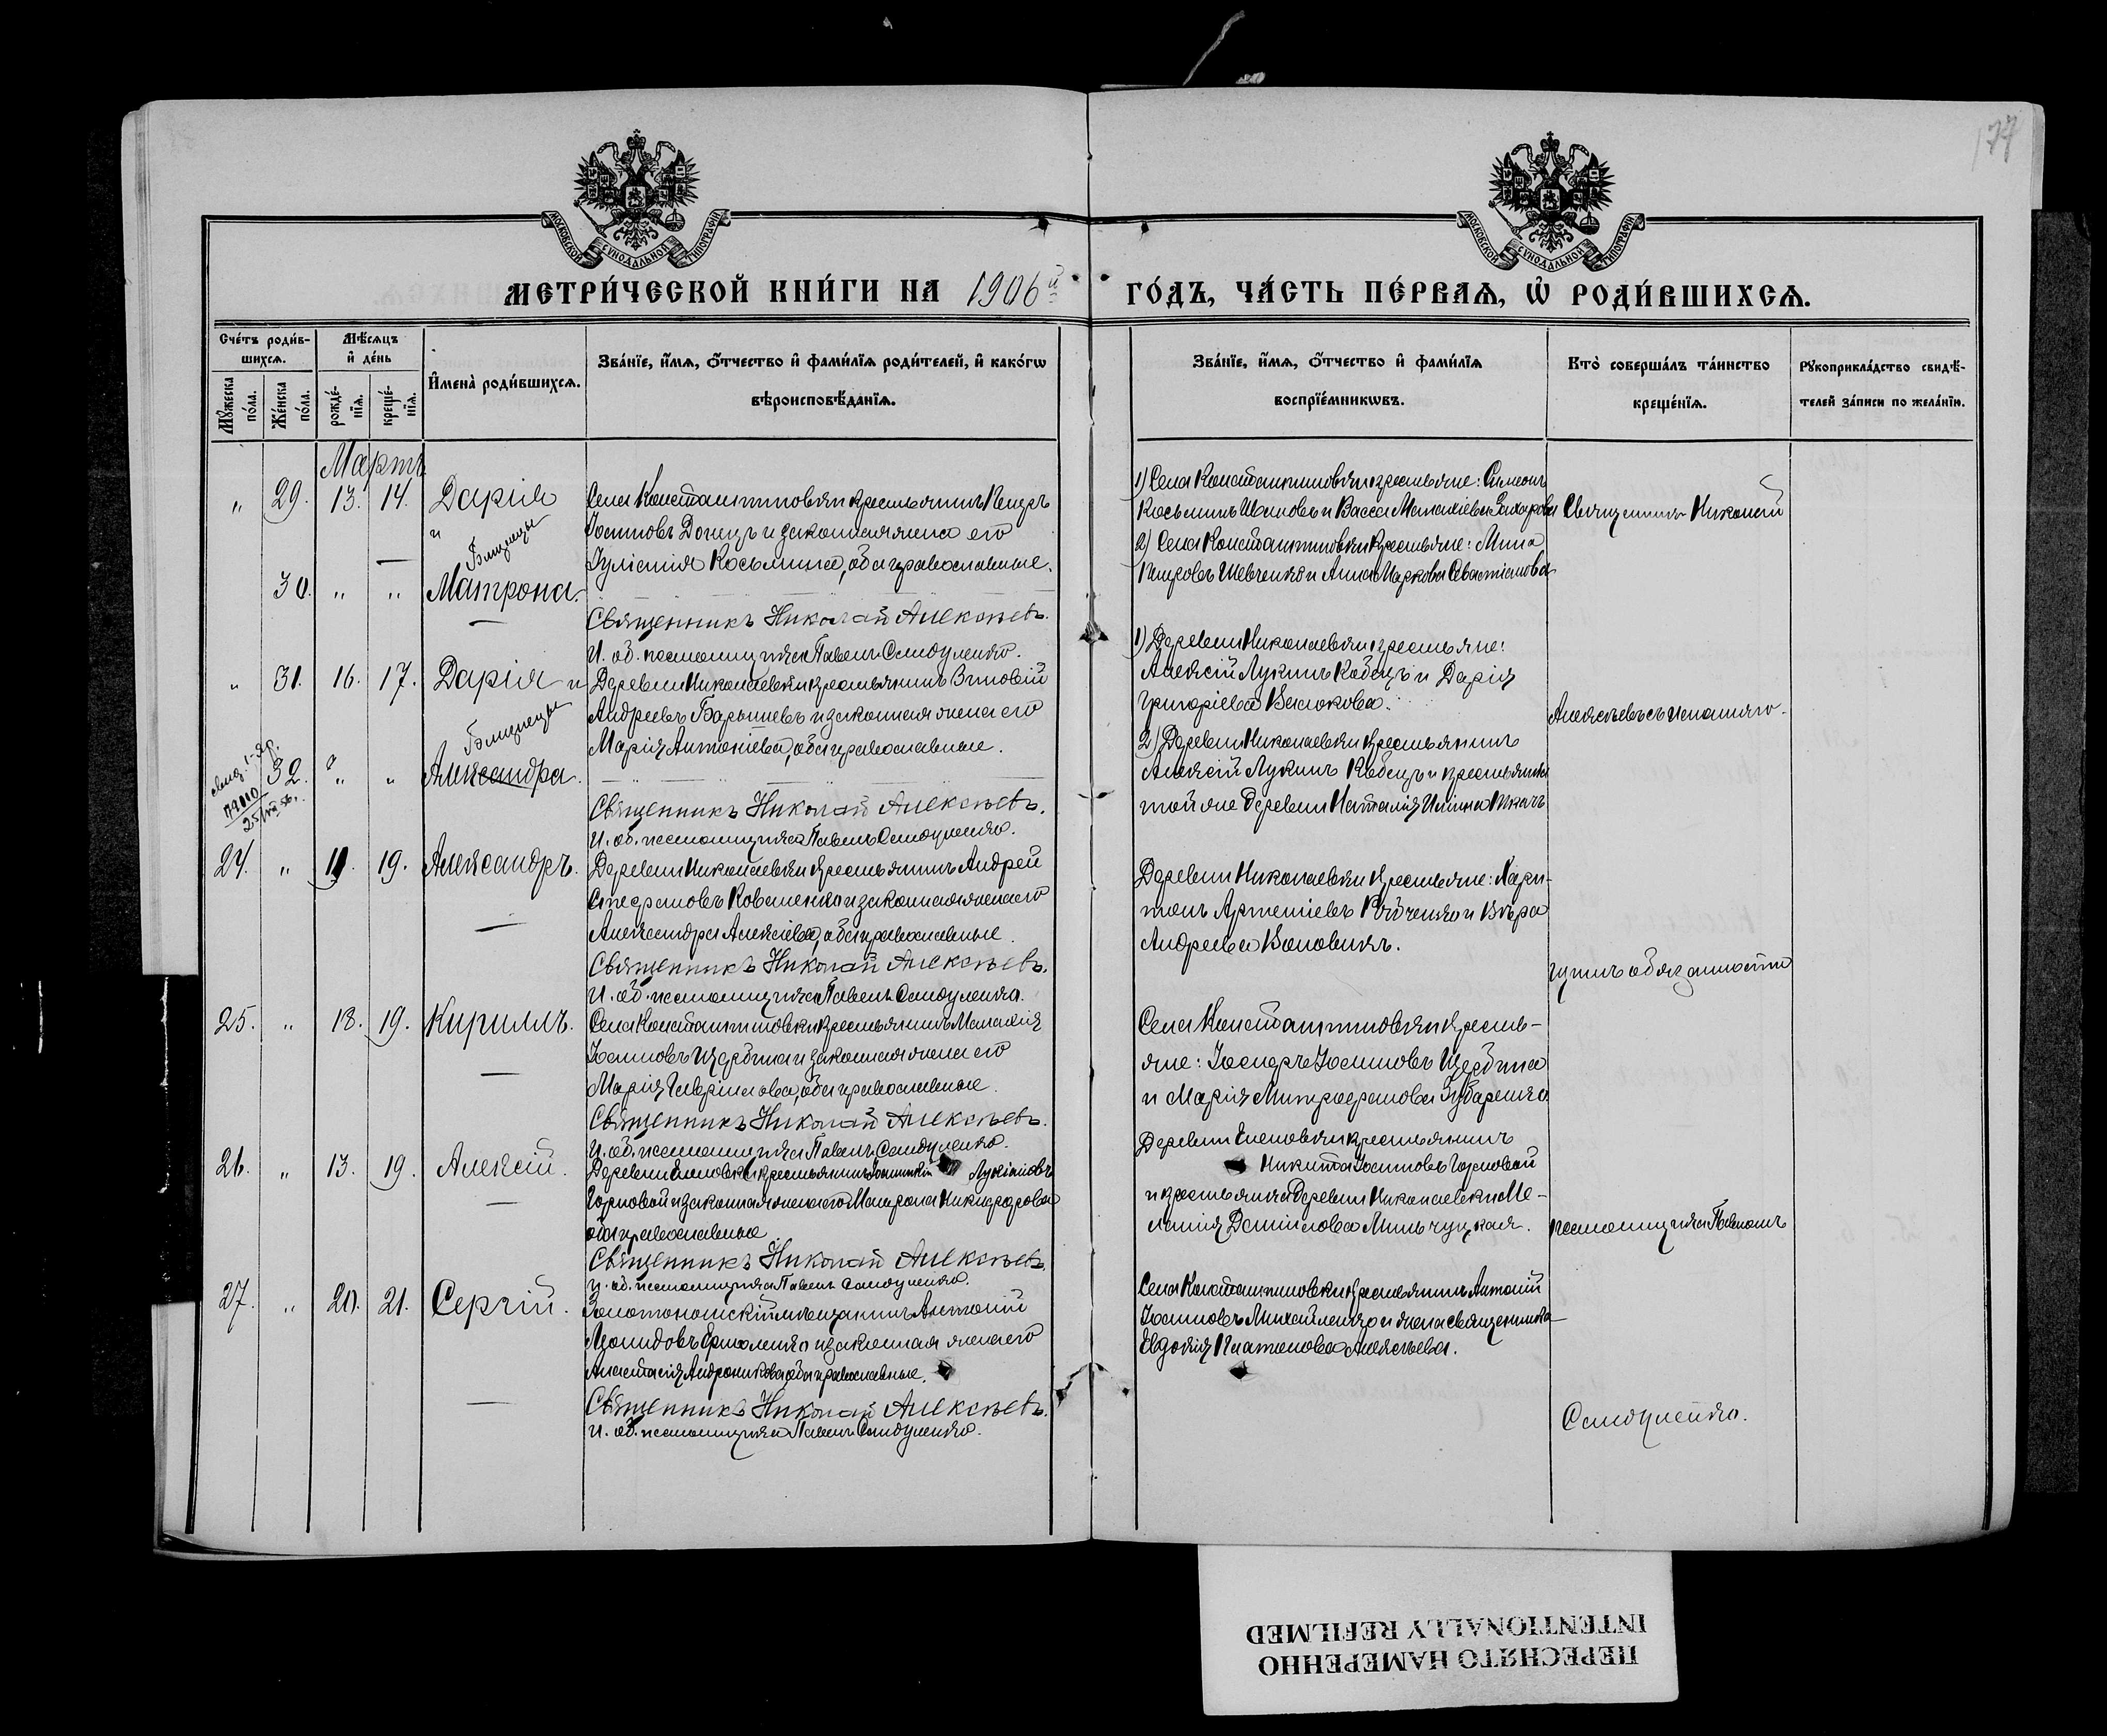 177
МОСКОВСКОЙ СУНОДАЛЬНОЙ ТИПОГРАФІИ
МОСКОВСКОЙ СУНОДАЛЬНОЙ ТИПОГРАФІИ
МЕТРИ́ЧЕСКОЙ КНИ́ГИ НА 1906й
ГО́ДЪ, ЧА́СТЬ ПЕ́РВАѦ, Ѡ҆ РОДИ́ВШИХСѦ.
Сче́тъ роди́в-
шихсѧ.
Мꙋжеска по́ла.
Же́нска по́ла.
Мѣ́сяцъ
и҆ де́нь
рожде́-
нїѧ.
креще́-
нїѧ.
И҆мена̀ роди́вшихсѧ.
Зва́нїе, и҆́мѧ, ѻ҆́тчество и҆ фами́лїѧ роди́телей, и҆ како́гѡ
вѣроисповѣ́данїѧ.
Зва́нїе, и҆́мѧ, ѻ҆́тчество и҆ фами́лїѧ
воспрїе́мникѡвъ.
Кто̀ соверша́лъ та́инство
креще́нїѧ.
Рꙋкоприкла́дство свидѣ́-
телей за́писи по жела́нїю.
Мартъ
" 29. 13. 14. Дарія
и
Близнецы
30. " " Матрона.
Села Константиновки крестьянинъ Петръ
Іоанновъ Донецъ и законная жена его
Іуліанія Косьмина, оба православные.
Священникъ Николай Алексѣевъ.
И. об. псаломщика Павелъ Самойленко.
1) Села Константиновки крестьяне: Симеонъ
Косьминъ Ивановъ и Васса Матѳіева Захарова
2) Села Константиновки крестьяне: Мина
Петровъ Шевченко и Анна Маркова Севастіанова
Священникъ Николай
" 31. 16. 17. Дарія и
Близнецы
32. " " Александра.
Деревни Николаевки крестьянинъ Зиновій
Андреевъ Барышевъ и законная жена его
Марія Антоніева, оба православные.
Священникъ Николай Алексѣевъ.
И. об. псаломщика Павелъ Самойленко.
1) Деревни Николаевки крестьяне:
Алексій Лукинъ Кобецъ и Дарія
Григоріева Васюкова.
2) Деревни Николаевки крестьянинъ
Алексій Лукинъ Кобецъ и крестьянка
той же деревни Наталія Ильина Ткачъ
Алексѣевъ съ исполняю-
24. " 11. 19. Александръ.
Деревни Николаевки крестьянинъ Андрей
Стефановъ Коваленко и законная жена его
Александра Алексіева, оба православные.
Священникъ Николай Алексѣевъ.
И. об. псаломщика Павелъ Самойленко.
Деревни Николаевки крестьяне: Хари-
тонъ Артеміевъ Рябченко и Вѣра
Андреева Коновикъ.
щимъ обязанности
25. " 18. 19. Кириллъ.
Села Константиновки крестьянинъ Малахія
Іоанновъ Щербина и законная жена его
Марія Гавріилова, оба православные.
Священникъ Николай Алексѣевъ.
И. об. псаломщика Павелъ Самойленко.
Села Константиновки кресть-
яне: Іосифъ Іоанновъ Щербина
и Марія Митрофанова Зубаренко
26. " 13. 19. Алексій.
Деревни Еленовки крестьянинъ Іоанникій Лукіановъ
Горловой и законная жена его Матрона Никифорова
оба православные
Священникъ Николай Алексѣевъ.
И. об. псаломщика Павелъ Самойленко.
Деревни Еленовки крестьянинъ
Никита Іоанновъ Горловой
и крестьянка деревни Николаевки Ме-
ланія Даніилова Мильчуцкая.
псаломщика Павломъ
27. " 20. 21. Сергій.
Золотоношскій мѣщанинъ Антоній
Леонидовъ Ермоленко и законная жена его
Анастасія Андроникова, оба православные.
Священникъ Николай Алексѣевъ.
И. об. псаломщика Павелъ Самойленко.
Села Константиновки крестьянинъ Антоній
Іоанновъ Михайленко и жена священника
Евдокія Платонова Алексѣева.
Самойленко.
ПЕРЕСНЯТО НАМЕРЕННО
INTENTIONALLY REFILMED